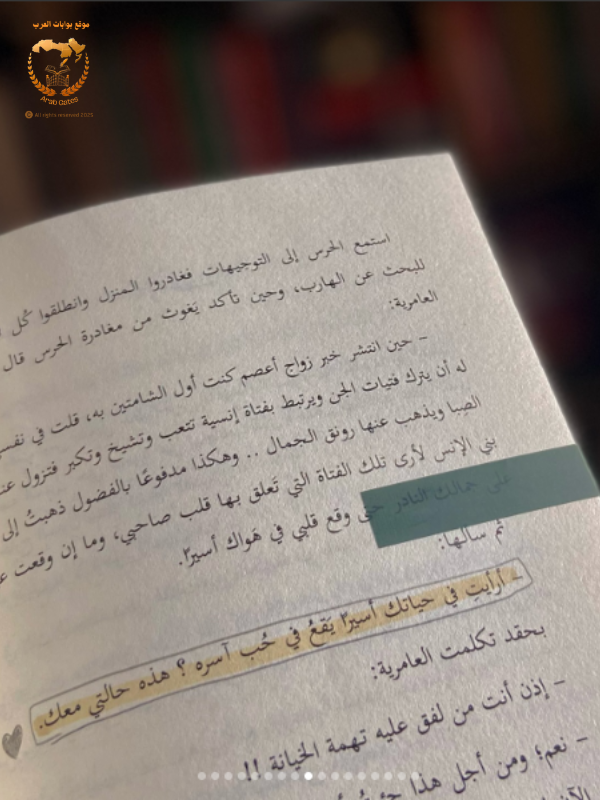 موقع بوابات العرب
Arab Gates
© All rights reserved 2025
استمع الحرس إلى التوجيهات فغادروا المنزل وانطلقوا كُل
للبحث عن الهارب، وحين تأكد يَغوث من مغادرة الحرس قال
العامرية:
– حين انتشر خبر زواج أعصم كنت أول الشامتين به، قلت في نفس
له أن يترك فتيات الجن ويرتبط بفتاة إنسية تتعب وتشيخ وتكبر فتزول عنـ
الصبا ويذهب عنها رونق الجمال .. وهكذا مدفوعًا بالفضول ذهبتُ إلى
بني الإنس لأرى تلك الفتاة التي تَعلق بها قلب صاحبي، وما إن وقعت عـ
على جمالك النادر حتى وقع قلبي في هَواك أسيرًا.
ثم سألها:
– أرأيتِ في حياتك أسيرًا يَقعُ في حُب آسره ؟ هذه حالتي معك.
بحقد تكلمت العامرية:
– إذن أنت من لفق عليه تهمة الخيانة !!
– نعم؛ ومن أجل هذا